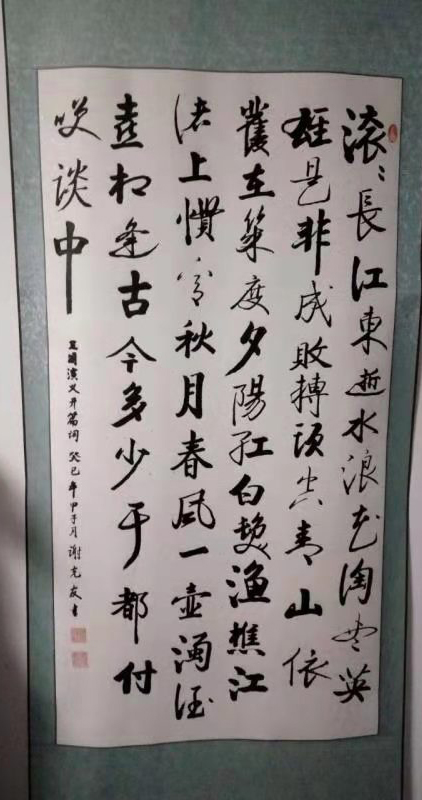 滚〻長江東逝水浪花淘尽英
雄是非成敗轉頭空青山依
舊在幾度夕陽紅白髮漁樵江
渚上慣看秋月春風一壺濁酒
喜相逢古今多少事都付
咲談中
三國演义开篇词 癸巳年甲子月 谢光友书